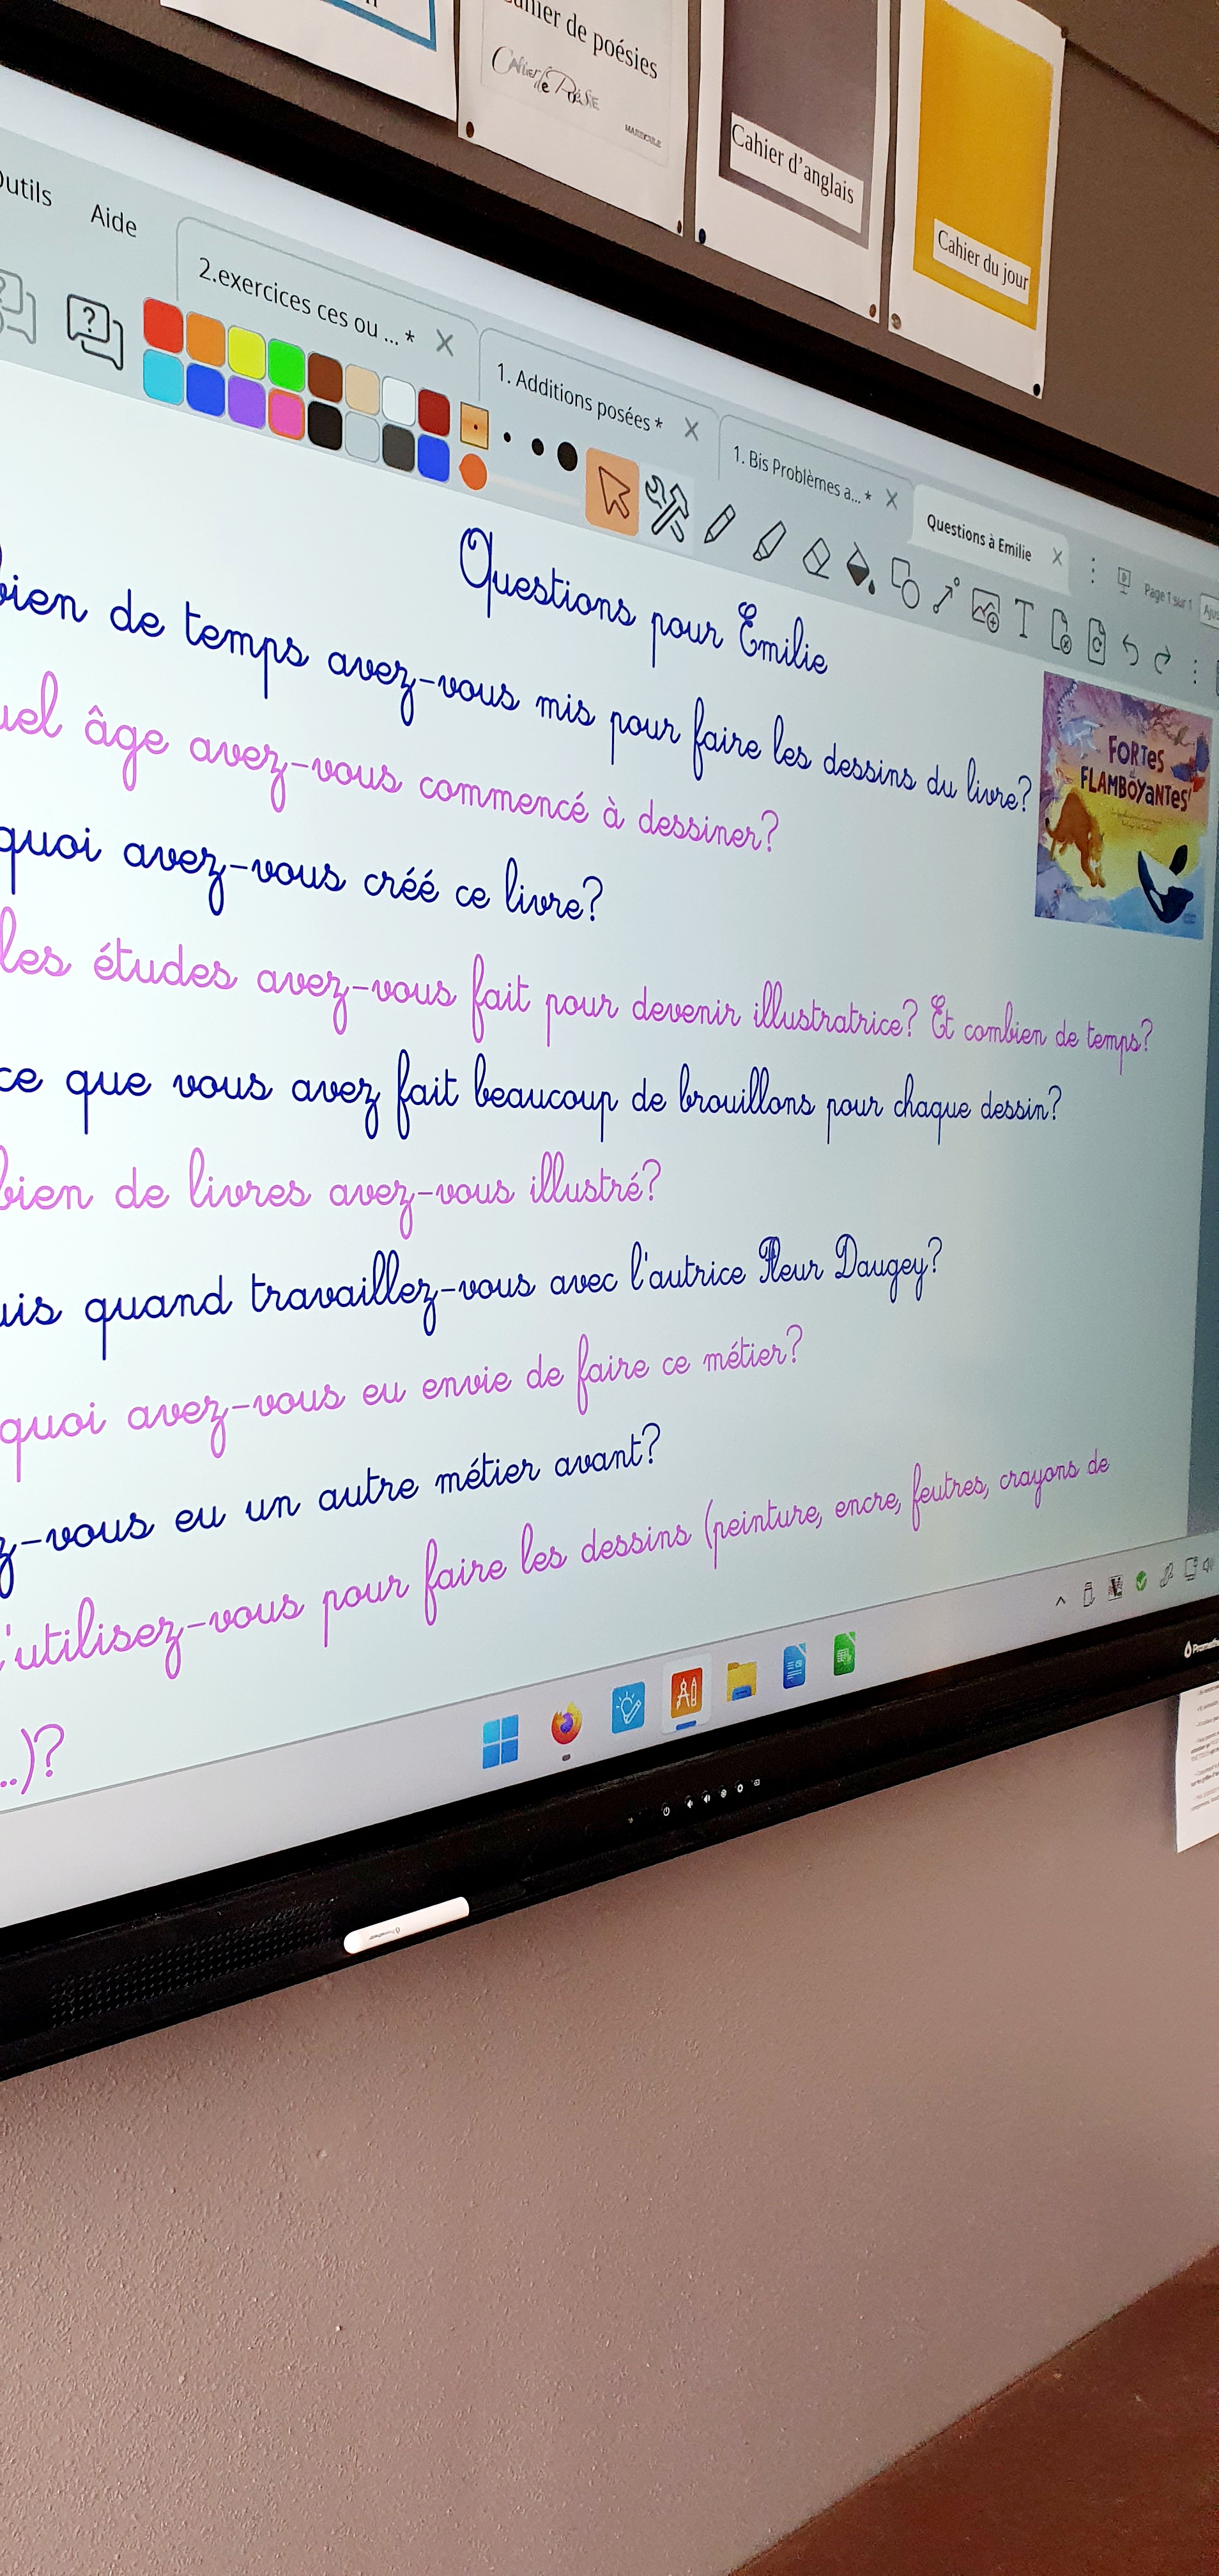 Cahier de poésies
Cahier de Poésie
MAJUSCULE
Cahier d'anglais
Cahier du jour
Outils Aide
2.exercices ces ou ... *
1. Additions posées *
1. Bis Problèmes a... *
Questions à Emilie
Page 1 sur 1
Questions pour Emilie
bien de temps avez-vous mis pour faire les dessins du livre?
uel âge avez-vous commencé à dessiner?
quoi avez-vous créé ce livre?
les études avez-vous fait pour devenir illustratrice? Et combien de temps?
ce que vous avez fait beaucoup de brouillons pour chaque dessin?
bien de livres avez-vous illustré?
uis quand travaillez-vous avec l'autrice Fleur Daugey?
quoi avez-vous eu envie de faire ce métier?
z-vous eu un autre métier avant?
'utilisez-vous pour faire les dessins (peinture, encre, feutres, crayons de
..)?
FORTES
FLAMBOYANTES
Promethean